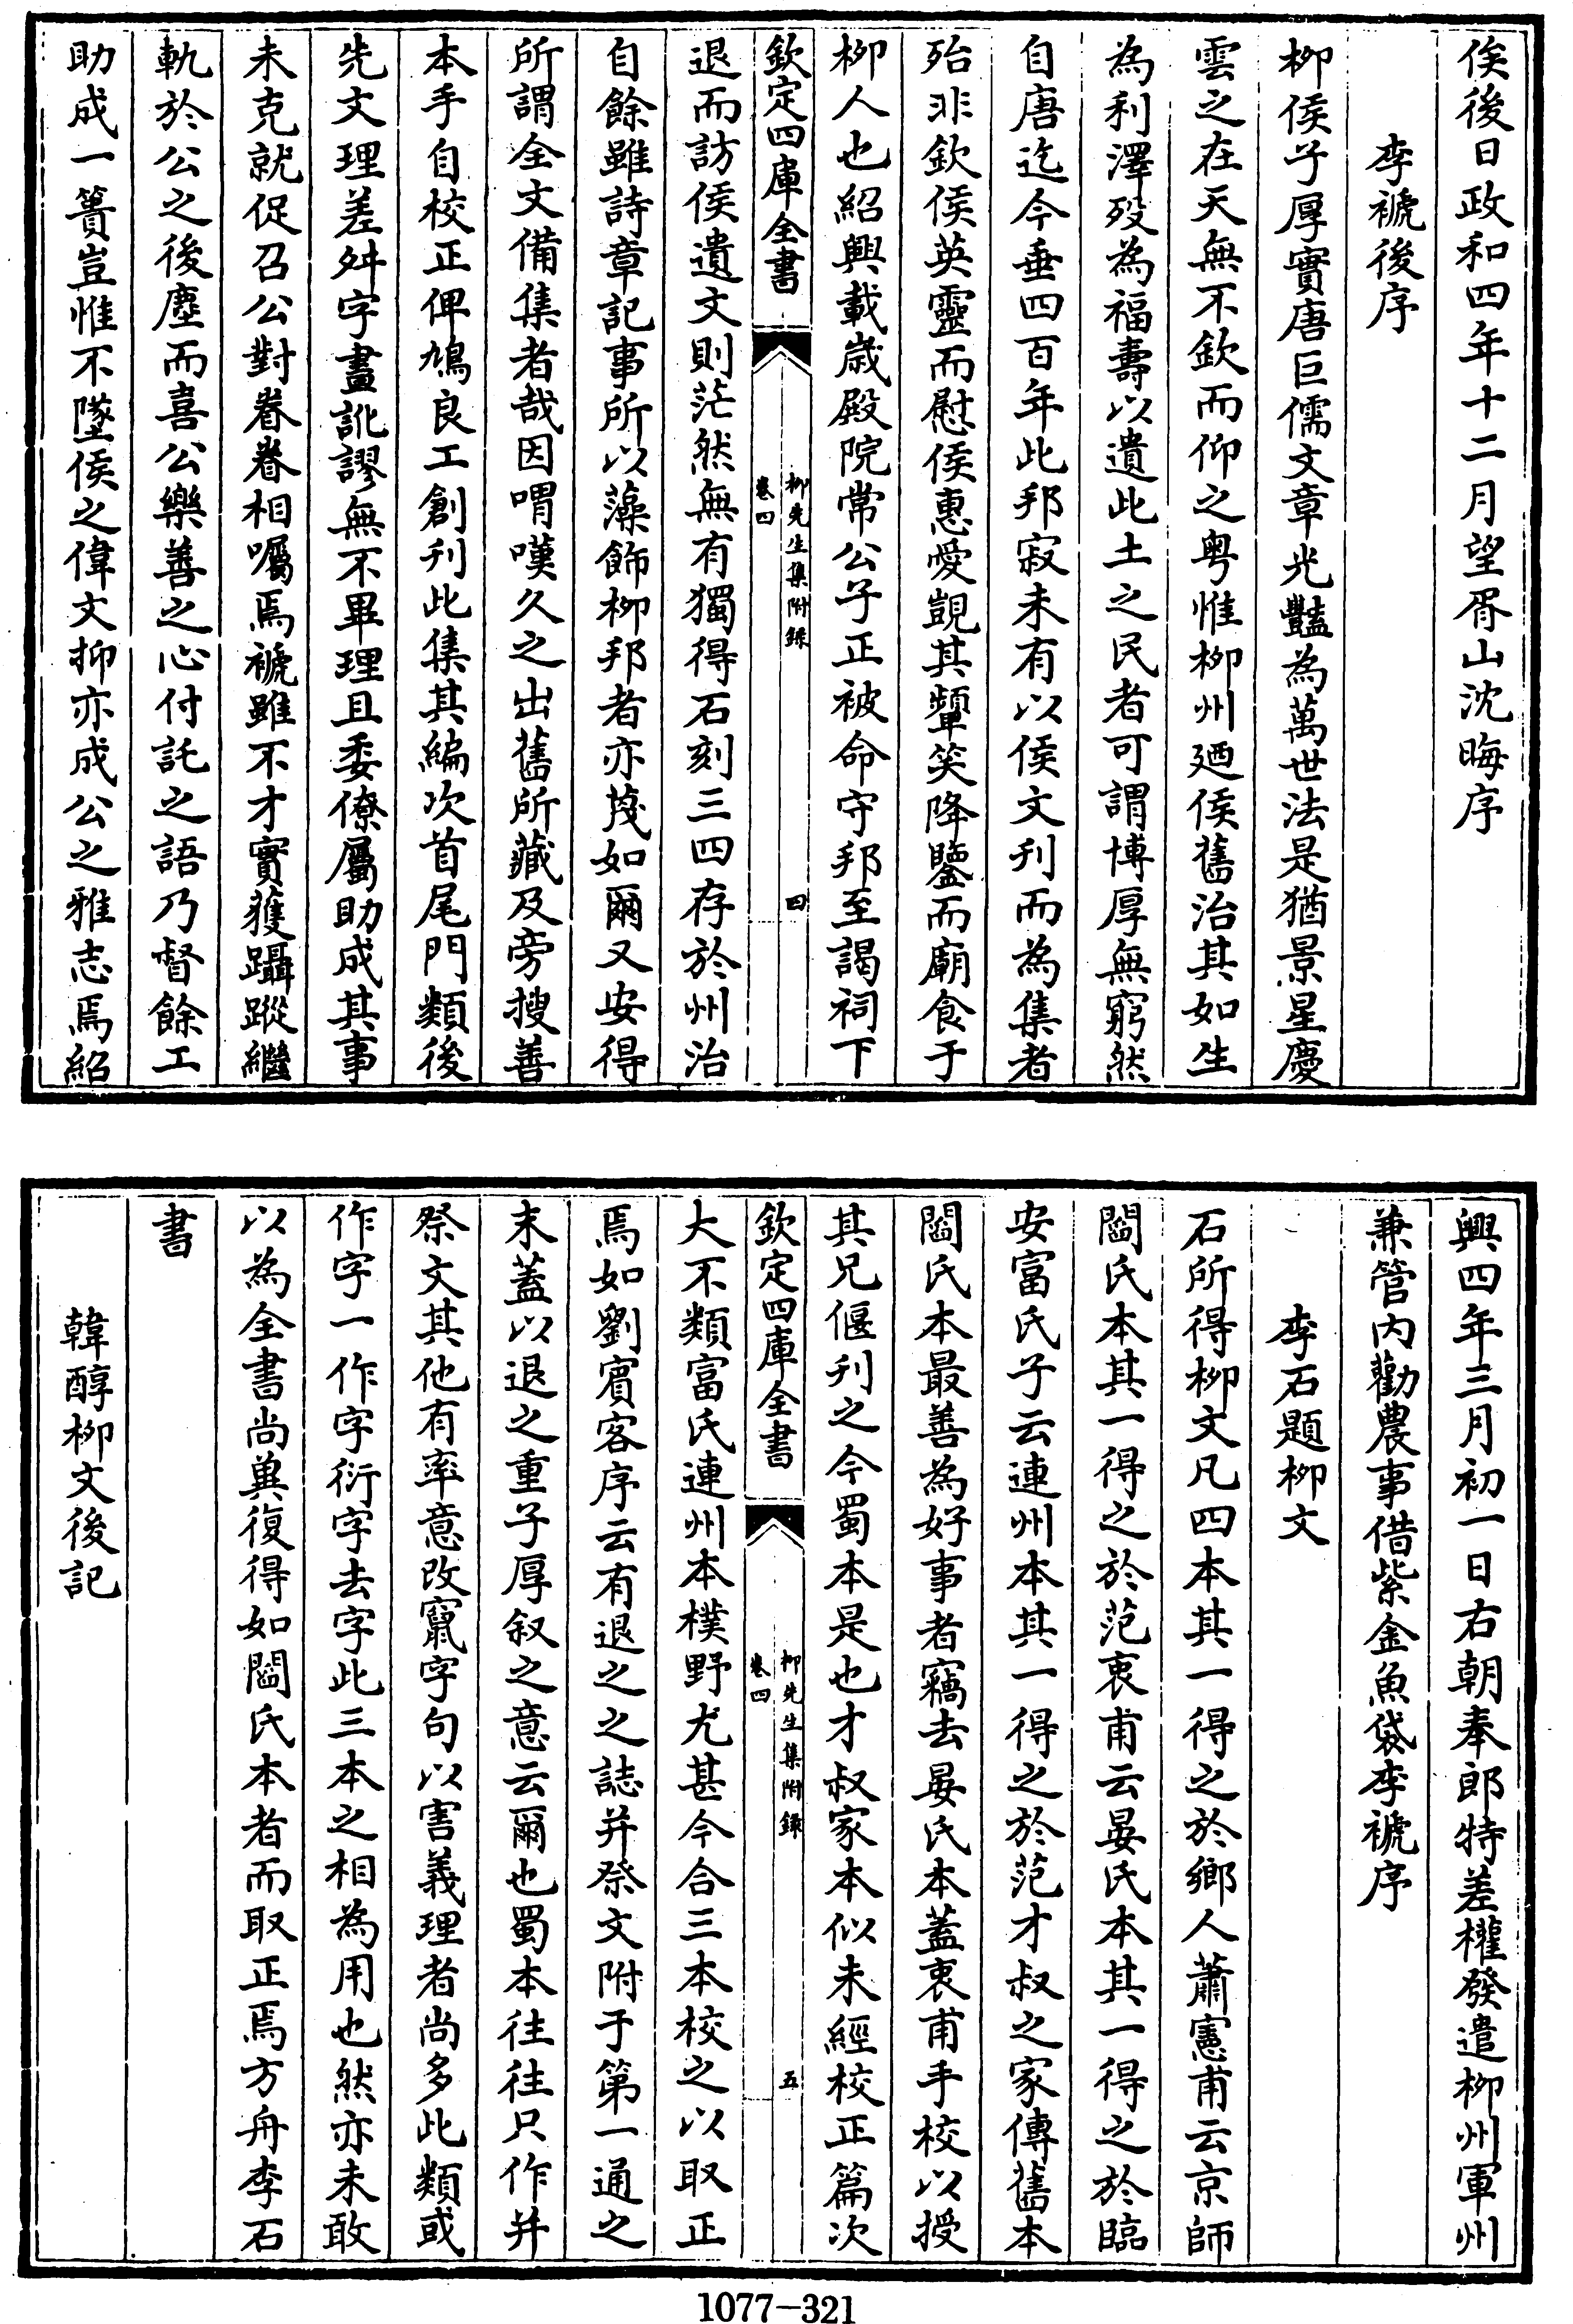 俟後日政和四年十二月望胥山沈晦序
李褫後序
柳侯子厚實唐巨儒文章光豔為萬世法是猶景星慶
雲之在天無不欽而仰之粤惟柳州廼侯舊治其如生
為利澤殁為福壽以遺此土之民者可謂博厚無窮然
自唐迄今垂四百年此邦寂未有以侯文刋而為集者
殆非欽侯英靈而慰侯惠愛覬其顰笑降鑒而廟食于
柳人也紹興載歲殿院常公子正被命守邦至謁祠下
欽定四庫全書
柳先生集附録
卷四
四
退而訪侯遺文則茫然無有獨得石刻三四存於州治
自餘雖詩章記事所以藻飾柳邦者亦蔑如爾又安得
所謂全文備集者哉因喟嘆久之出舊所藏及旁搜善
本手自校正俾鳩良工創刋此集其編次首尾門類後
先文理差舛字畫訛謬無不畢理且委僚屬助成其事
未克就促召公對眷眷相囑焉褫雖不才實獲躡蹤繼
軌於公之後塵而喜公樂善之心付託之語乃督餘工
助成一簣豈惟不墜侯之偉文抑亦成公之雅志焉紹
興四年三月初一日右朝奉郎特差權發遣柳州軍州
兼管内勸農事借紫金魚袋李褫序
李石題柳文
石所得柳文凡四本其一得之於鄉人蕭憲甫云京師
閻氏本其一得之於范衷甫云晏氏本其一得之於臨
安富氏子云連州本其一得之於范才叔之家傳舊本
閻氏本最善為好事者竊去晏氏本蓋衷甫手校以授
其兄偃刋之今蜀本是也才叔家本似未經校正篇次
欽定四庫全書
柳先生集附録
卷四
五
大不類富氏連州本樸野尤甚今合三本校之以取正
焉如劉賓客序云有退之之誌并祭文附于第一通之
末蓋以退之重子厚叙之意云爾也蜀本往往只作并
祭文其他有率意改竄字句以害義理者尚多此類或
作字一作字衍字去字此三本之相為用也然亦未敢
以為全書尚兾復得如閻氏本者而取正焉方舟李石
書
韓醇柳文後記
1077—321